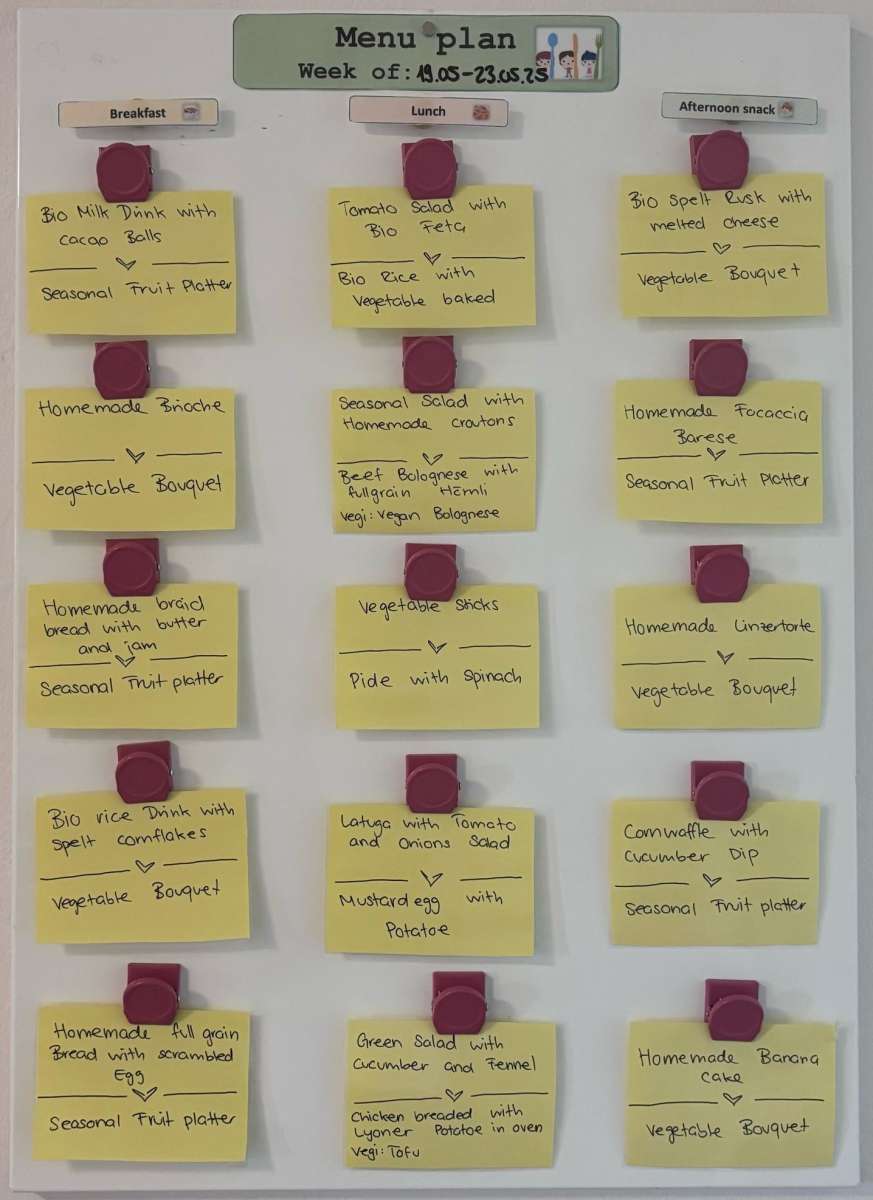 Menu plan
Week of: 19.05-23.05.25
Breakfast
Lunch
Afternoon snack
Bio Milk Drink with
cacao Balls
Seasonal Fruit Platter
Tomato Salad with
Bio Feta
Bio Rice with
Vegetable baked
Bio Spelt Rusk with
melted cheese
Vegetable Bouquet
Homemade Brioche
Vegetable Bouquet
Seasonal Salad with
Homemade croutons
Beef Bolognese with
fullgrain Hörnli
Vegi: Vegan Bolognese
Homemade Focaccia
Barese
Seasonal Fruit Platter
Homemade braid
bread with butter
and jam
Seasonal Fruit platter
Vegetable Sticks
Pide with Spinach
Homemade Linzertorte
Vegetable Bouquet
Bio rice Drink with
Spelt cornflakes
Vegetable Bouquet
Latuga with Tomato
and Onions Salad
Mustard egg with
Potatoe
Cornwaffle with
Cucumber Dip
Seasonal Fruit platter
Homemade full grain
Bread with scrambled
Egg
Seasonal Fruit platter
Green Salad with
Cucumber and Fennel
Chicken breaded with
Lyoner Potatoe in oven
Vegi: Tofu
Homemade Banana
Cake
Vegetable Bouquet